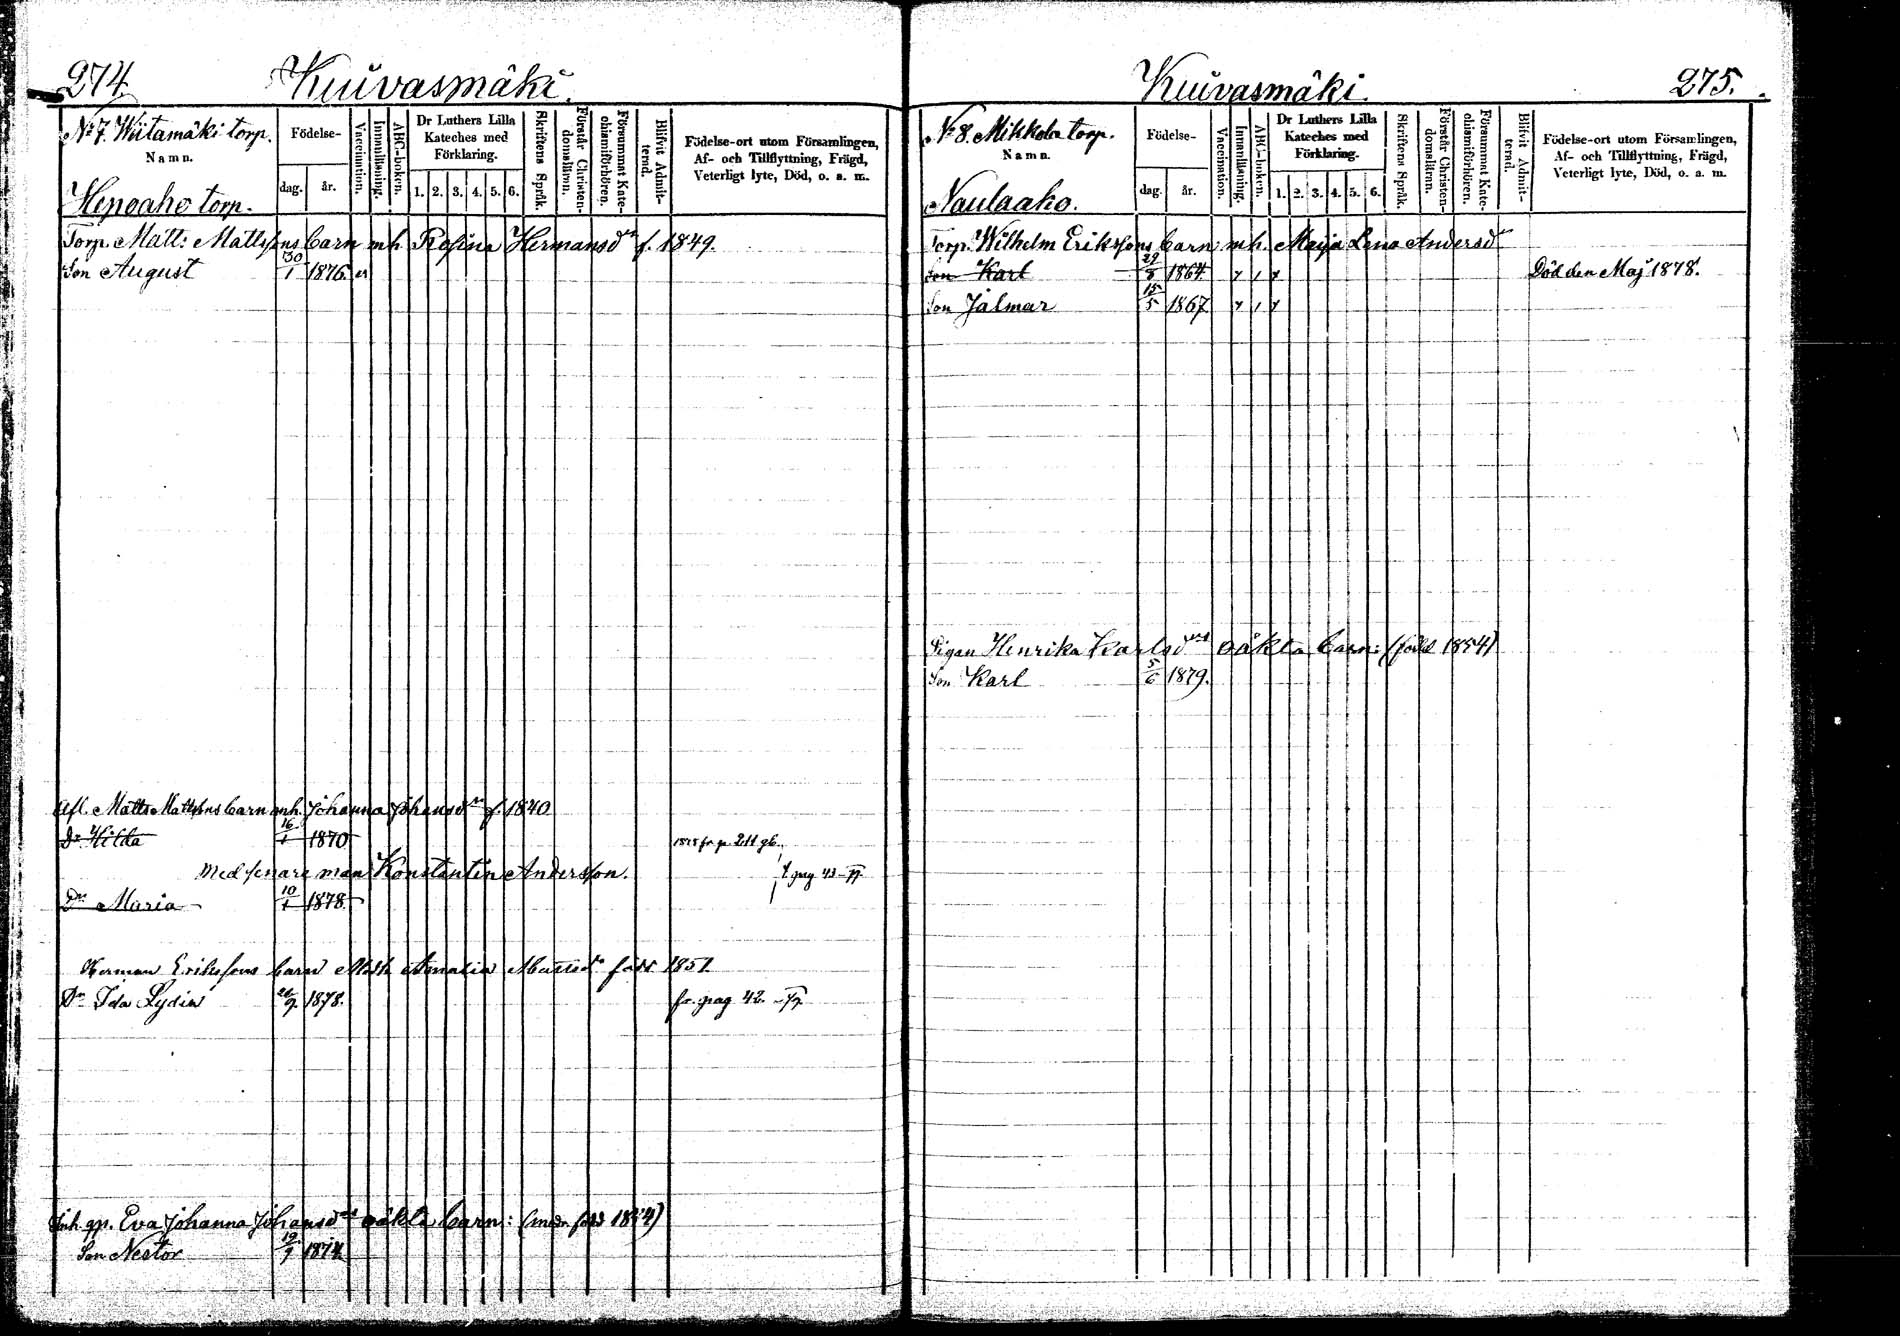 274. Kuivasmäki.
No 7. Wiitamäki torp.
Namn.
Hepoaho torp.
Födelse-
dag. år.
Vaccination.
Innanläsning.
ABC-boken.
Dr Luthers Lilla Kateches med Förklaring.
1. 2. 3. 4. 5. 6.
Skriftens Språk.
Förstår Christen-domsläran.
Försummat Kate-chismiförhören.
Blifvit Admit-terad.
Födelse-ort utom Församlingen,
Af- och Tillflyttning, Frägd,
Veterligt lyte, Död, o. s. m.
Torp. Matts Mattssons barn mh. Rosina Hermansdr f. 1849.
Son August 30/1 1876
Afl. Matts Mattssons barn mh. Johanna Johansdr f. 1840
Dr Hilda 16/1 1870 fr. p. 211 gb.
Med senare man Konstantin Andersson. pag 43
Dr Maria 10/1 1878
Herman Erikssons barn Amalia Mattsdr född 1851
Dr Ida Lydia 9. 1878. fr. pag 42.
Inh. qp. Eva Johanna Johansdr oäkta barn: (modr född 1854)
Son Nestor 19/9 1874
Kuivasmäki. 275.
No 8. Mikkola torp.
Namn.
Naulaaho.
Födelse-
dag. år.
Vaccination.
Innanläsning.
ABC-boken.
Dr Luthers Lilla Kateches med Förklaring.
1. 2. 3. 4. 5. 6.
Skriftens Språk.
Förstår Christen-domsläran.
Försummat Kate-chismiförhören.
Blifvit Admit-terad.
Födelse-ort utom Församlingen,
Af- och Tillflyttning, Frägd,
Veterligt lyte, Död, o. s. m.
Torp. Wilhelm Erikssons barn mh. Maija Lena Andersdr
Son Karl 29/8 1864 Död den Maj 1878.
Son Jalmar 15/5 1867
Pigan Henrika Karlsd oäkta barn: (född 1854)
Son Karl 5/6 1879.